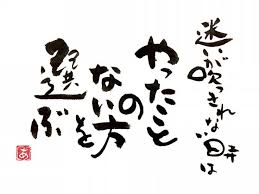 迷いが吹っきれない時は
やったこと
のない方を
選ぶ
あ